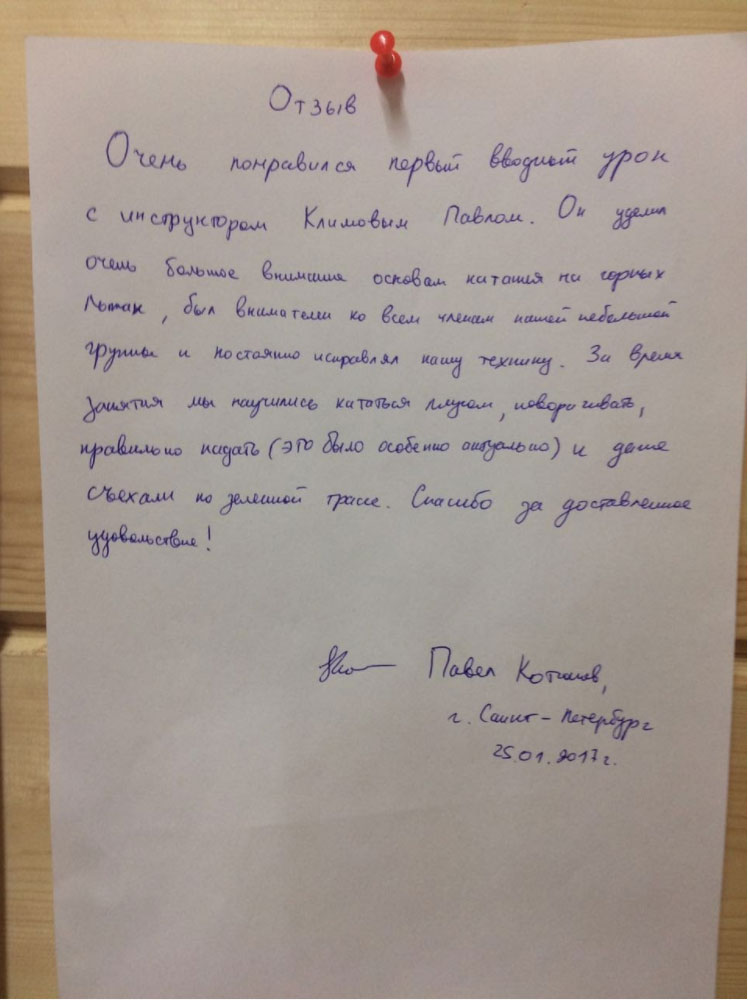 Отзыв
Очень понравился первый вводный урок
с инструктором Климовым Павлом. Он уделил
очень большое внимание основам катания на горных
лыжах, был внимателен ко всем членам нашей небольшой
группы и постоянно исправлял нашу технику. За время
занятия мы научились кататься плугом, поворачивать,
правильно падать (это было особенно актуально) и даже
съехали по зеленной трассе. Спасибо за доставленное
удовольствие!
Павел
г. Санкт-Петербург
25.01.2017г.